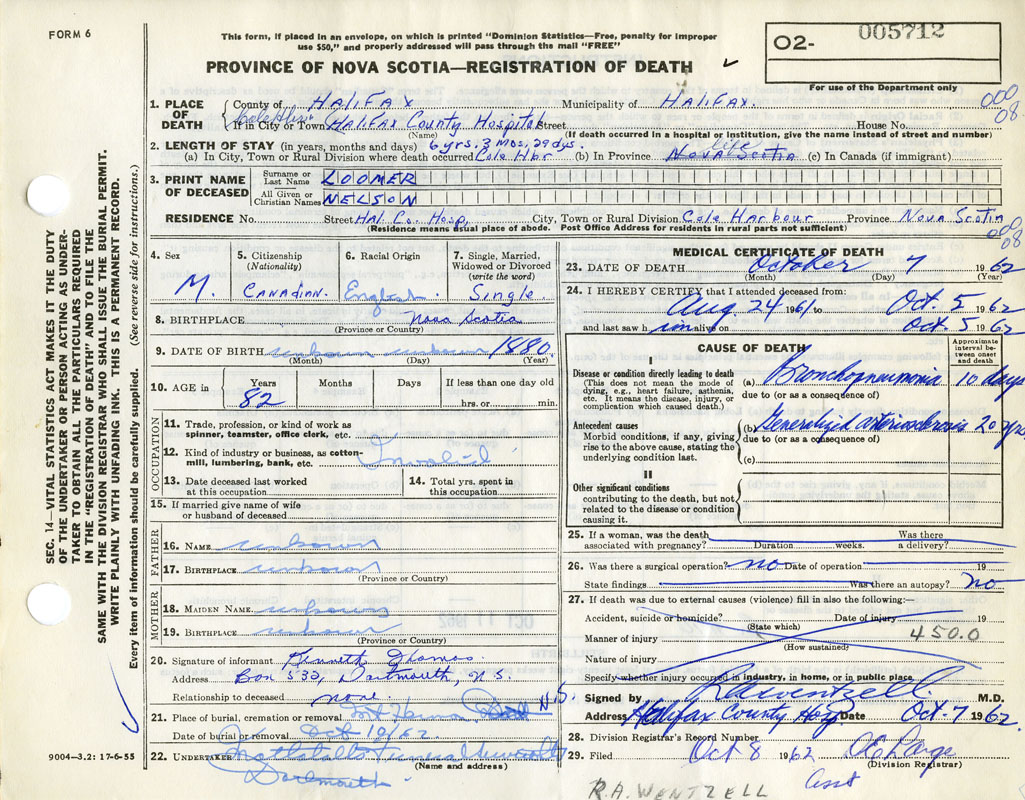 FORM 6
This form, if placed in an envelope, on which is printed "Dominion Statistics—Free, penalty for improper
use $50," and properly addressed will pass through the mail "FREE"
PROVINCE OF NOVA SCOTIA—REGISTRATION OF DEATH
O2- 005712
For use of the Department only
000
08.
1. PLACE OF DEATH
County of Halifax Municipality of Halifax.
Cole Hbr
If in City or Town Halifax County Hospital Street House No.
(Name) (If death occurred in a hospital or institution, give the name instead of street and number)
2. LENGTH OF STAY (in years, months and days) 6 yrs, 3 mos, 29 dys. life
(a) In City, Town or Rural Division where death occurred Cole Hbr (b) In Province Nova Scotia (c) In Canada (if immigrant)
3. PRINT NAME OF DECEASED
Surname or Last Name LOOMER
All Given or Christian Names NELSON
RESIDENCE No. Street Hal. Co. Hosp, City, Town or Rural Division Cole Harbour Province Nova Scotia
(Residence means usual place of abode. Post Office Address for residents in rural parts not sufficient)
000
08
4. Sex
M.
5. Citizenship
(Nationality)
Canadian.
6. Racial Origin
English.
7. Single, Married,
Widowed or Divorced
(write the word)
Single.
8. BIRTHPLACE Nova Scotia
(Province or Country)
9. DATE OF BIRTH unknown unknown 1880.
(Month) (Day) (Year)
10. AGE in Years Months Days If less than one day old
82 hrs. or min.
OCCUPATION
11. Trade, profession, or kind of work as
spinner, teamster, office clerk, etc.
12. Kind of industry or business, as cotton-
mill, lumbering, bank, etc. Invalid
13. Date deceased last worked
at this occupation
14. Total yrs. spent in
this occupation
15. If married give name of wife
or husband of deceased
FATHER
16. NAME unknown
17. BIRTHPLACE unknown
(Province or Country)
MOTHER
18. MAIDEN NAME unknown
19. BIRTHPLACE unknown
(Province or Country)
20. Signature of informant Kenneth Thomas
Address Box 533, Dartmouth, N.S.
Relationship to deceased none.
21. Place of burial, cremation or removal N.S.
Date of burial or removal Oct 10/62
22. UNDERTAKER Funeral
(Name and address)
Dartmouth
MEDICAL CERTIFICATE OF DEATH
23. DATE OF DEATH October 7 1962
(Month) (Day) (Year)
24. I HEREBY CERTIFY that I attended deceased from:
Aug. 24 1961 to Oct. 5 1962
and last saw him alive on Oct 5 1962
CAUSE OF DEATH
Approximate
interval be-
tween onset
and death
I
Disease or condition directly leading to death
(This does not mean the mode of
dying, e.g., heart failure, asthenia,
etc. It means the disease, injury, or
complication which caused death.)
(a) Bronchopneumonia 10 days
due to (or as a consequence of)
Antecedent causes
Morbid conditions, if any, giving
rise to the above cause, stating the
underlying condition last.
(b) Generalized arteriosclerosis 20 yrs
due to (or as a consequence of)
(c)
II
Other significant conditions
contributing to the death, but not
related to the disease or condition
causing it.
25. If a woman, was the death Was there
associated with pregnancy? Duration weeks. a delivery?
26. Was there a surgical operation? no Date of operation 19
State findings Was there an autopsy? no
27. If death was due to external causes (violence) fill in also the following:—
Accident, suicide or homicide? Date of injury 19
(State which)
Manner of injury 450.0
(How sustained)
Nature of injury
Specify whether injury occurred in industry, in home, or in public place.
Signed by R A Wentzell M.D.
Address Halifax County Hosp Date Oct-7 1962
28. Division Registrar's Record Number
29. Filed Oct 8 1962
(Division Registrar)
asst
R.A. WENTZELL
SEC. 14—VITAL STATISTICS ACT MAKES IT THE DUTY
OF THE UNDERTAKER OR PERSON ACTING AS UNDER-
TAKER TO OBTAIN ALL THE PARTICULARS REQUIRED
IN THE "REGISTRATION OF DEATH" AND TO FILE THE
SAME WITH THE DIVISION REGISTRAR WHO SHALL ISSUE THE BURIAL PERMIT.
WRITE PLAINLY WITH UNFADING INK. THIS IS A PERMANENT RECORD.
Every item of information should be carefully supplied. (See reverse side for instructions.)
9004—3.2: 17-6-55